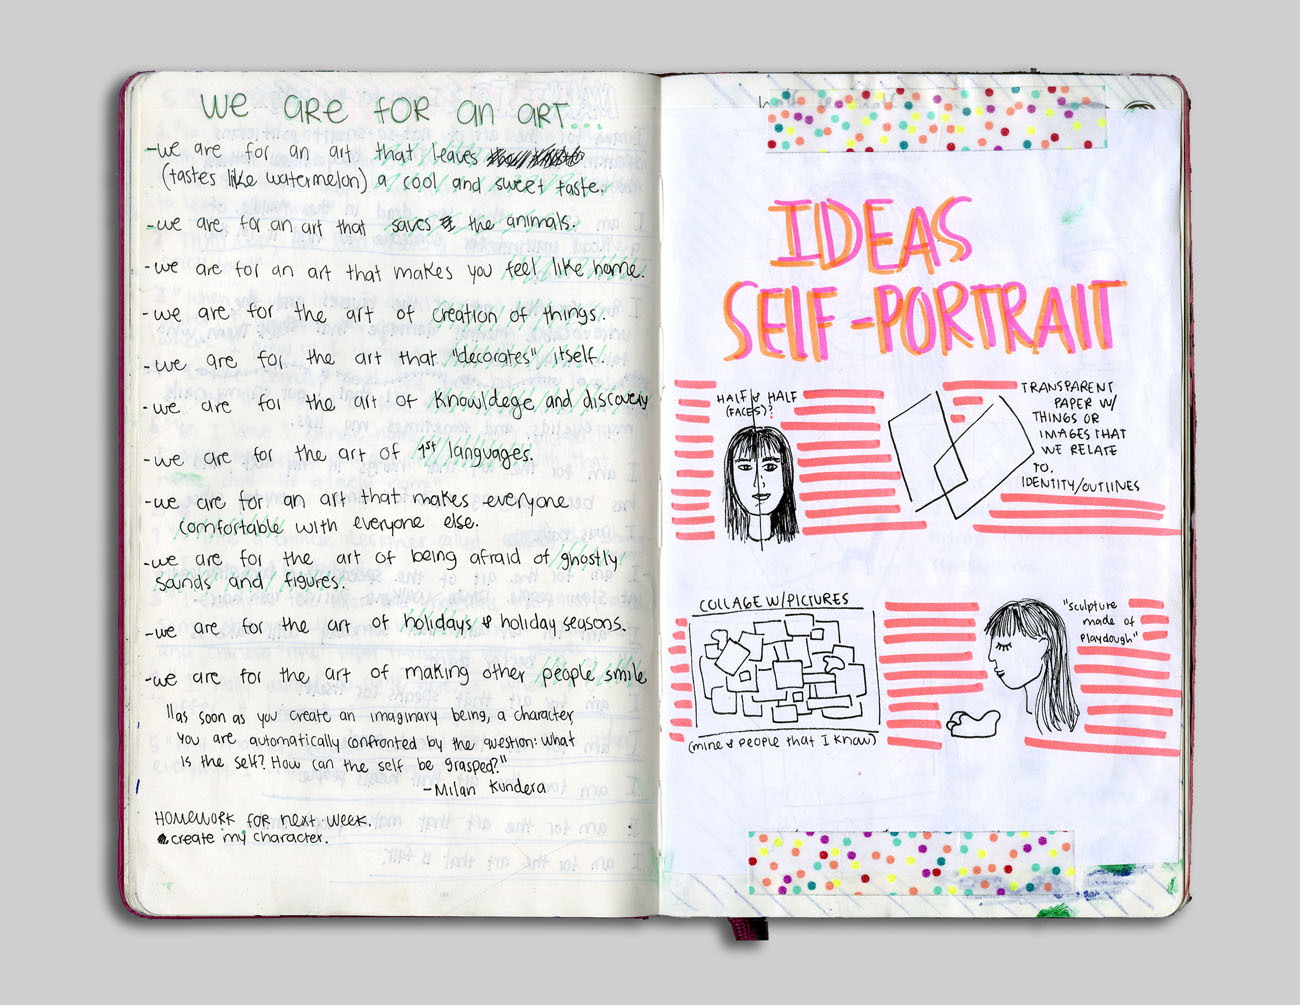 WE ARE FOR AN ART...
-we are for an art that leaves
(tastes like watermelon) a cool and sweet taste.
-we are for an art that saves the animals.
-we are for an art that makes you feel like home.
-we are for the art of creation of things.
-we are for the art that "decorates" itself.
-we are for the art of knowldege and discovery
-we are for the art of 1st languages.
-we are for an art that makes everyone
comfortable with everyone else.
-we are for the art of being afraid of ghostly
sounds and figures.
-we are for the art of holidays & holiday seasons.
-we are for the art of making other people smile
"as soon as you create an imaginary being, a character
you are automatically confronted by the question: what
is the self? How can the self be grasped?"
-Milan Kundera
HOMEWORK FOR next week.
create my character.
IDEAS
SELF-PORTRAIT
HALF & HALF
(FACES)?
TRANSPARENT
PAPER W/
THINGS OR
IMAGES THAT
WE RELATE
TO.
IDENTITY/OUTLINES
COLLAGE W/PICTURES
(mine & people that I know)
"sculpture
made of
Playdough"